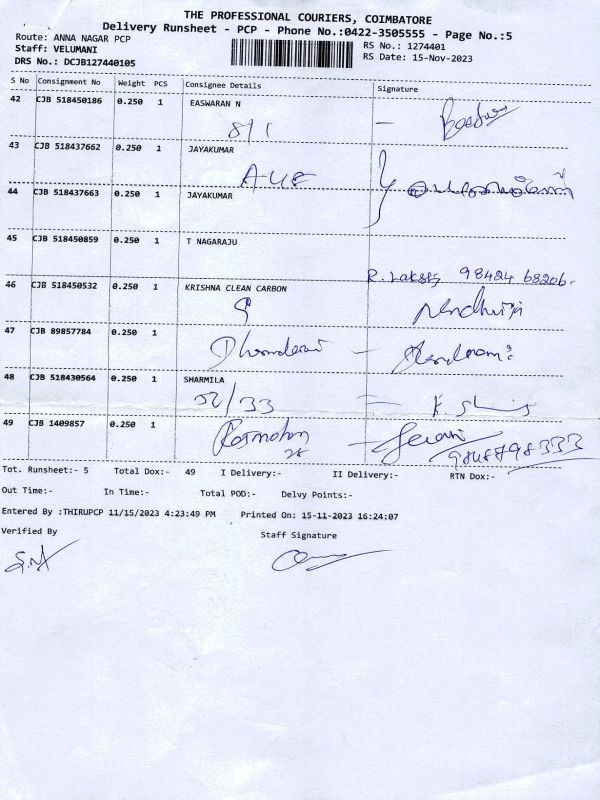 THE PROFESSIONAL COURIERS, COIMBATORE
Delivery Runsheet - PCP - Phone No.:0422-3505555 - Page No.:5
Route: ANNA NAGAR PCP
RS No.: 1274401
Staff: VELUMANI
RS Date: 15-Nov-2023
DRS No.: DCJB127440105
S No Consignment No Weight PCS Consignee Details Signature
42 CJB 518450186 0.250 1 EASWARAN N
8/1 -
43 CJB 518437662 0.250 1 JAYAKUMAR
44 CJB 518437663 0.250 1 JAYAKUMAR
45 CJB 518450859 0.250 1 T NAGARAJU
98424 68206.
46 CJB 518450532 0.250 1 KRISHNA CLEAN CARBON
47 CJB 89857784 0.250 1
48 CJB 518430564 0.250 1 SHARMILA
52/33
49 CJB 1409857 0.250 1
Tot. Runsheet:- 5 Total Dox:- 49 I Delivery:- II Delivery:- RTN Dox:-
Out Time:- In Time:- Total POD:- Delvy Points:-
Entered By :THIRUPCP 11/15/2023 4:23:49 PM Printed On: 15-11-2023 16:24:07
Verified By Staff Signature